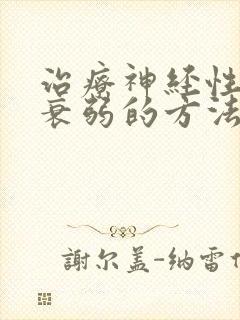 治療神経性
衰弱的方法
謝尔盖-纳雷